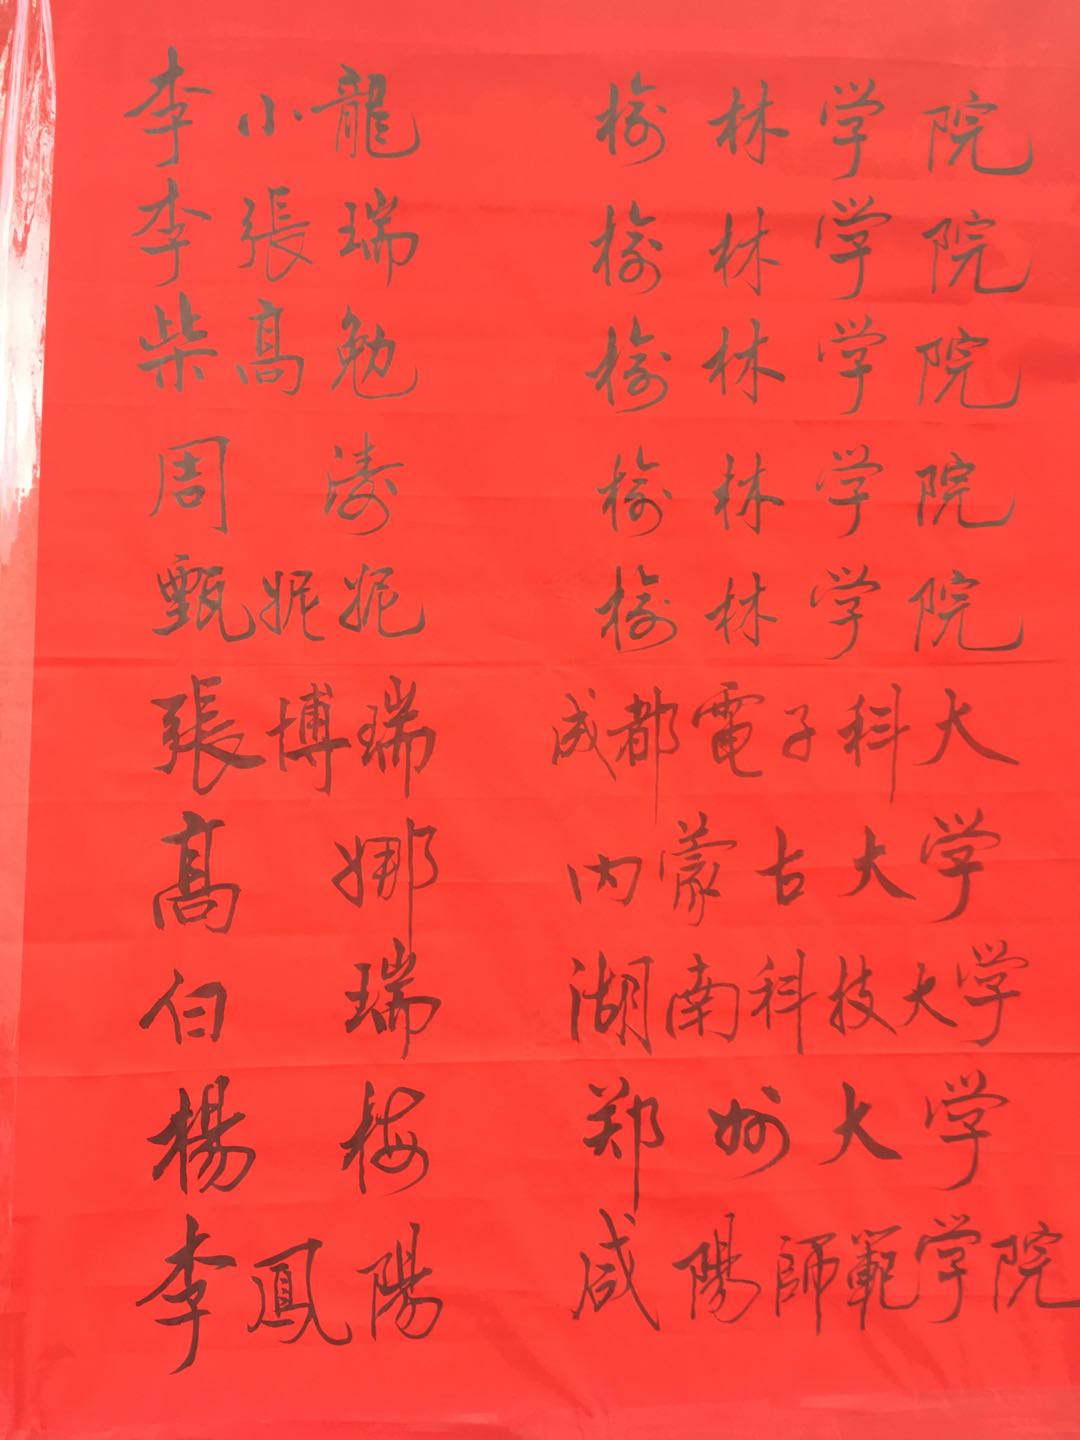 李小龍 榆林学院
李張瑞 榆林学院
柴高勉 榆林学院
周涛 榆林学院
甄妮妮 榆林学院
張博瑞 成都電子科大
高娜 内蒙古大学
白瑞 湖南科技大学
楊梅 郑州大学
李鳳陽 咸陽師範学院